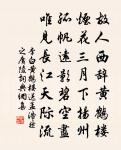 故人西辭黄鶴樓
煙花三月下揚州
孤帆遠影碧空盡
唯見長江天際流
李白黄鶴樓送孟浩然
之廣陵詞典網